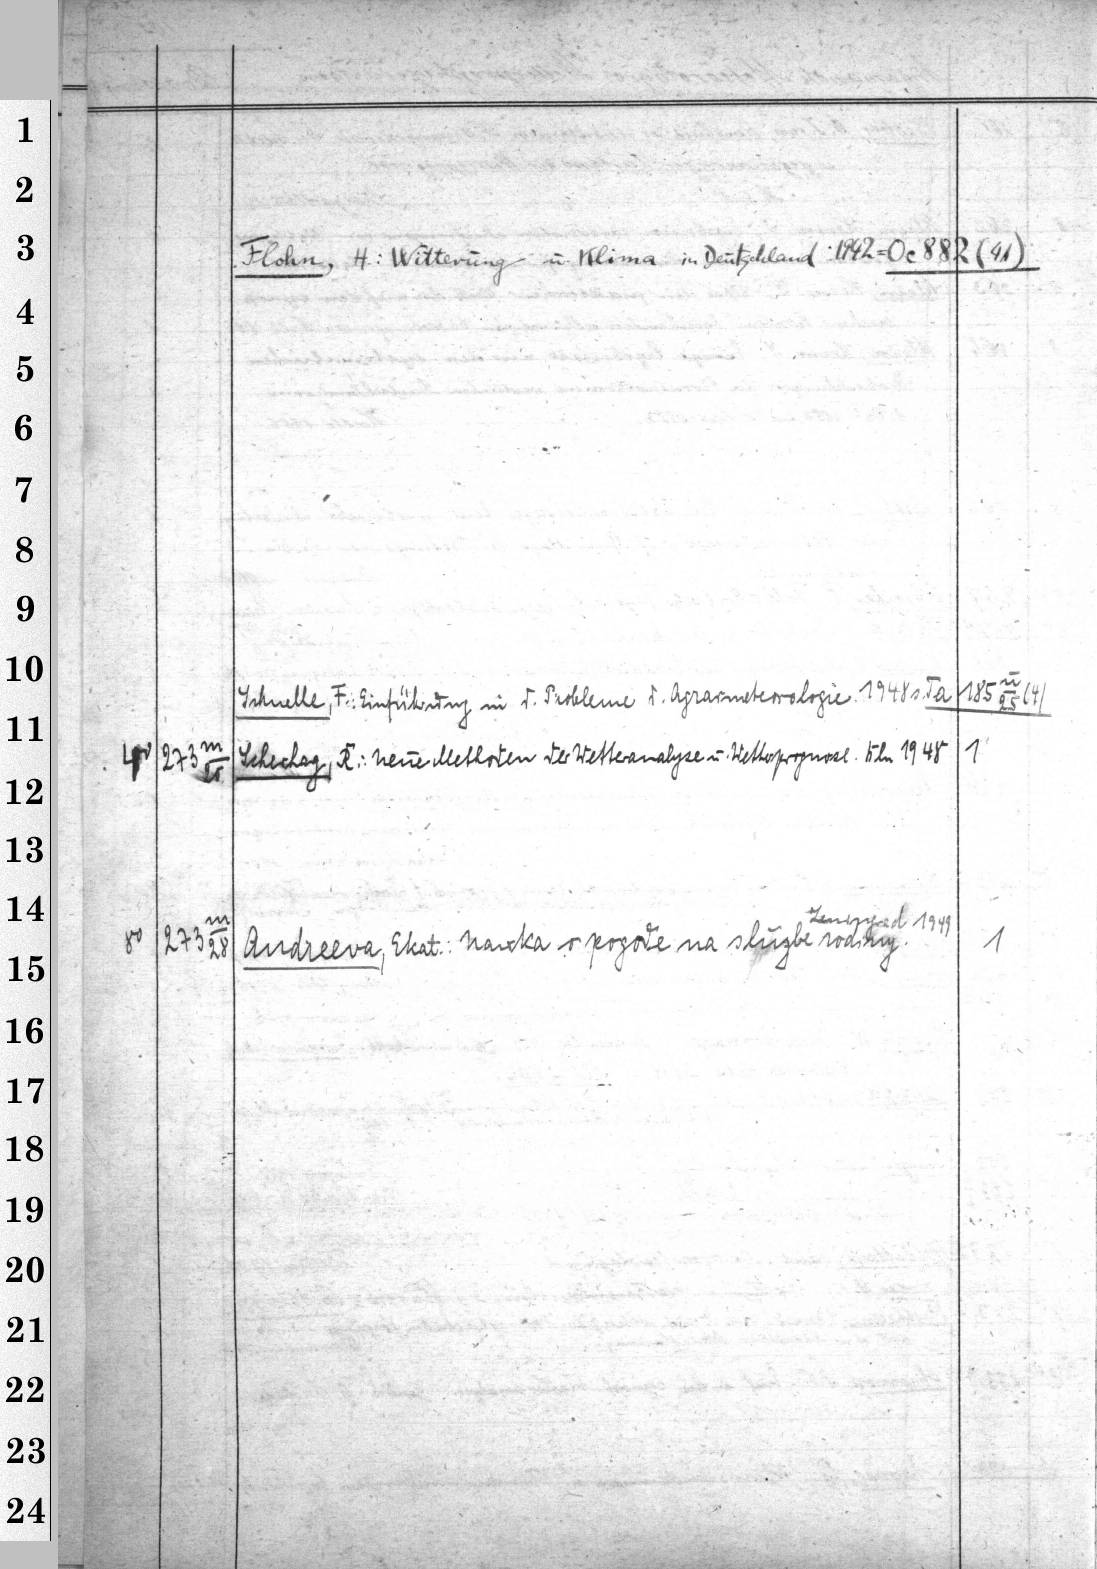 1
2
3
Flohn, H: Witterung u. Klima in Deutschland. 1942 = Oc 882 (41)
4
5
6
7
8
9
10
Schnelle, F.: Einführung in d. Probleme d. Agrarmeteorologie. 1948 s. Ta 185 m/25 (4)
11
4° 273 m Scherhag, R.: Neue Methoden der Wetteranalyse u. Wetterprognose. Bln 1948 1
12
13
14
Leningrad 1949
8° 273 m/28 Andreeva, Ekat.: Nauka o pogode na službe rodiny. 1
15
16
17
18
19
20
21
22
23
24